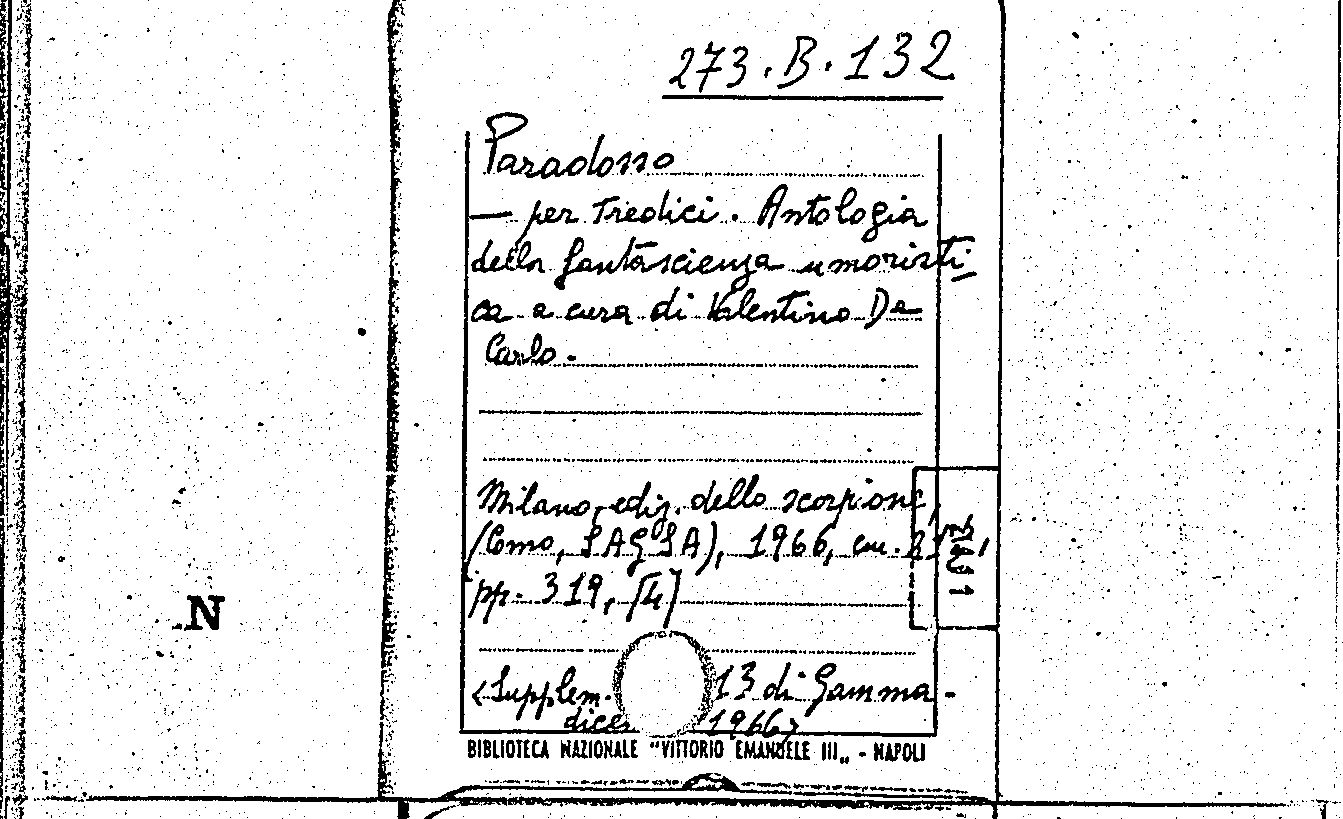 273.B.132
Paradosso
— per Tredici. Antologia
della fantascienza umoristi=
ca a cura di Valentino De
Carlo.
Milano, ediz. dello scorpione,
(Como, SAGSA), 1966, cm.
pp. 319, [4]
N
<Supplem. 13 di Gamma -
1966>
BIBLIOTECA NAZIONALE "VITTORIO EMANUELE III„ - NAPOLI